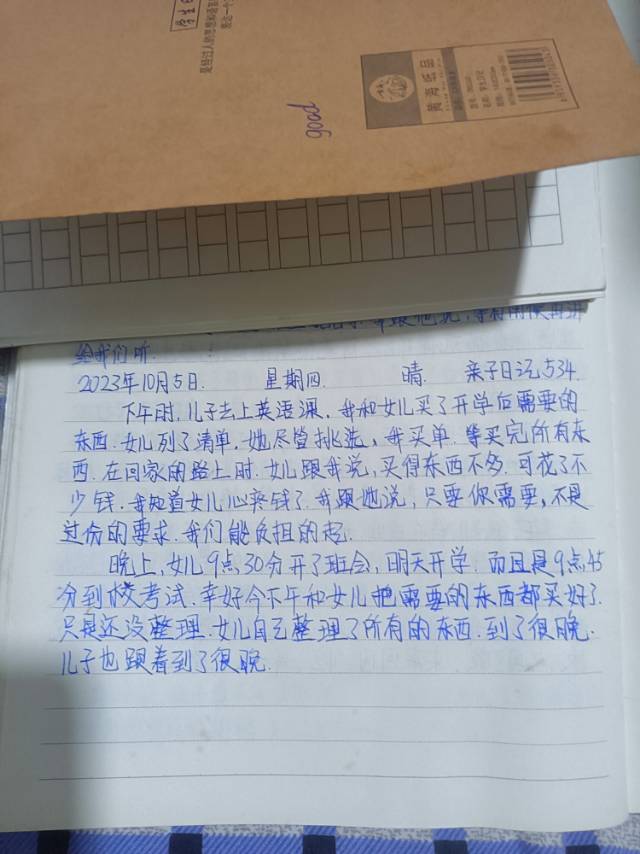 good
黄海纸品
给我们听.
2023年10月5日. 星期四. 晴. 亲子日记534.
下午时,儿子去上英语课,我和女儿买了开学后需要的
东西.女儿列了清单.她尽管挑选,我买单.等买完所有东
西.在回家的路上时.女儿跟我说,买得东西不多.可花了不
少钱.我知道女儿心疼钱了.我跟她说,只要你需要,不是
过份的要求.我们能负担的起.
晚上,女儿9点,30分开了班会,明天开学.而且是9点,45
分到校考试.幸好今下午和女儿把需要的东西都买好了.
只是还没整理.女儿自己整理了所有的东西.到了很晚.
儿子也跟着到了很晚.